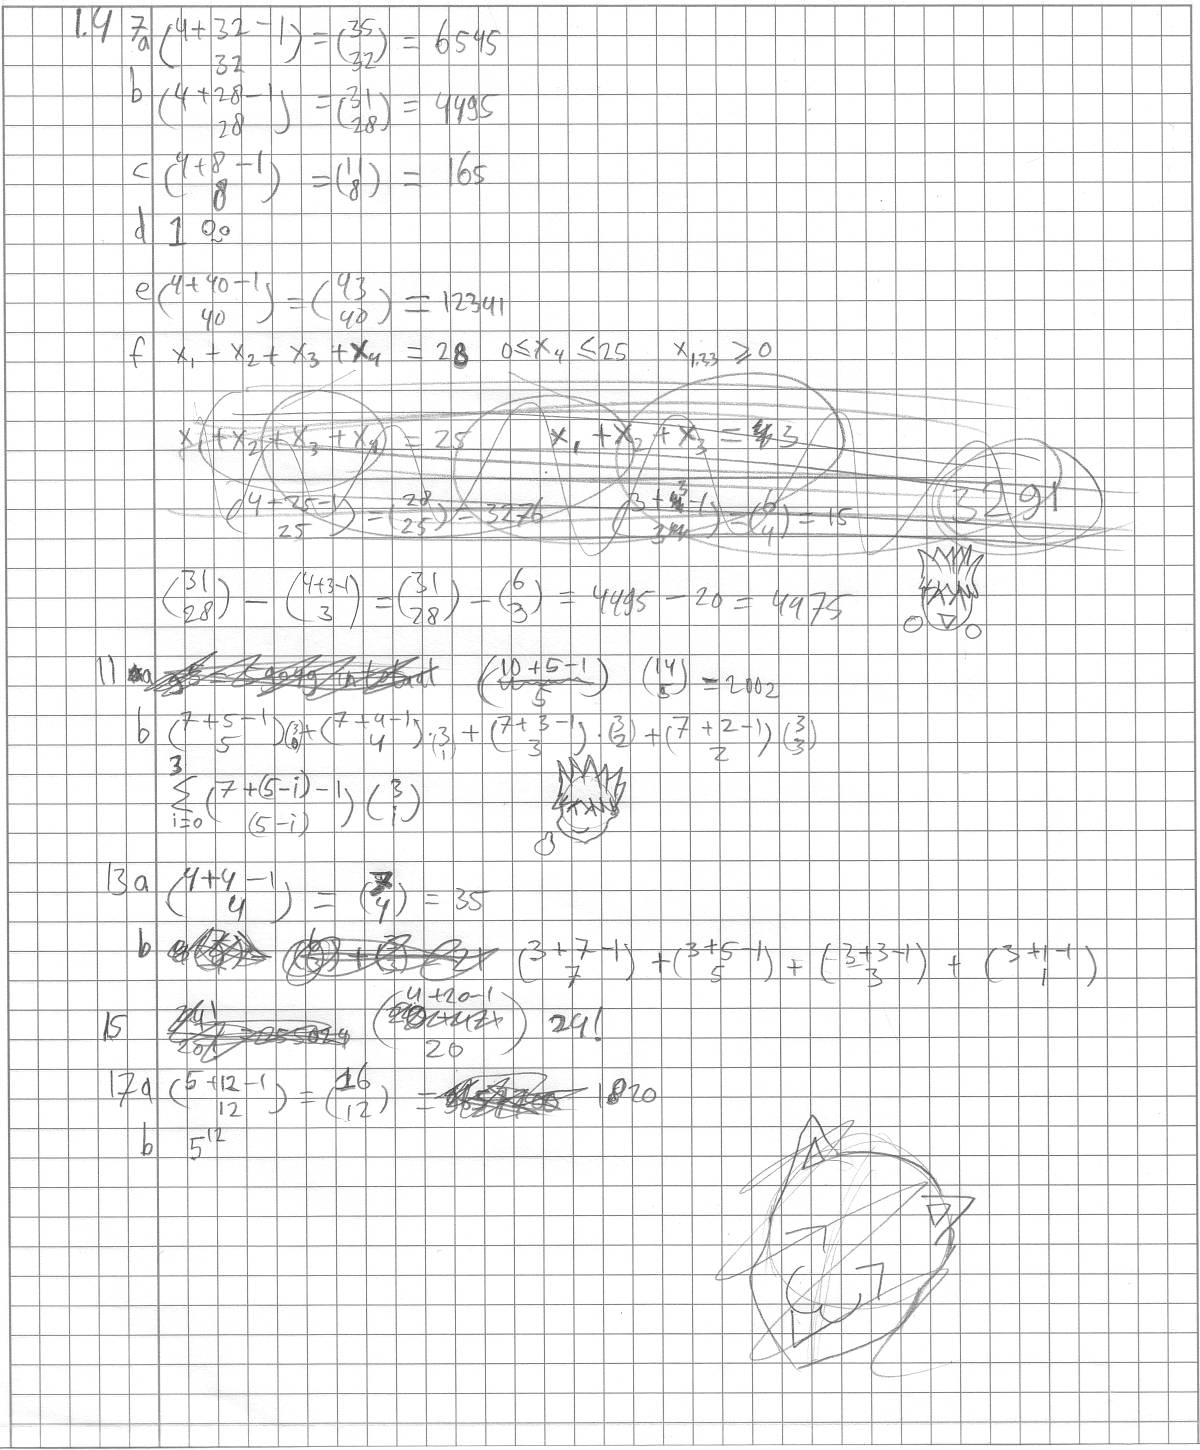 1.4 7a (4+32-1 32) = (35 32) = 6545
b (4+28-1 28) = (31 28) = 4495
c (4+8-1 8) = (11 8) = 165
d 1
e (4+40-1 40) = (43 40) = 12341
f x₁ + x₂ + x₃ + x₄ = 28 0 ≤ x₄ ≤ 25 x₁,₂,₃ ≥ 0
x₁ + x₂ + x₃ + x₄ = 25 x₁ + x₂ + x₃ = 3
(4+25-1 25) = (28 25) = 3276 = (6 4) = 15 3291
(31 28) - (4+3-1 3) = (31 28) - (6 3) = 4495 - 20 = 4475
11 a (10+5-1 5) (14 5) = 2002
b (7+5-1 5)(3 0) + (7+4-1 4)·(3 1) + (7+3-1 3)·(3 2) + (7+2-1 2)(3 3)
3 Σ i=0 (7+(5-i)-1 (5-i)) (3 i)
13 a (4+4-1 4) = (7 4) = 35
b (3+7-1 7) + (3+5-1 5) + (3+3-1 3) + (3+1-1 1)
15 (4+20-1 20) 24!
17a (5+12-1 12) = (16 12) = 1820
b 5¹²